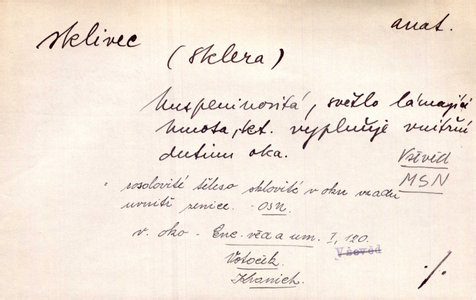 sklivec
anat.
(sklera)
huspeninovitá, světlo lámající
hmota, kt. vyplňuje vnitřní
dutinu oka.
Všěvěd
MSN
rosolovité těleso sklovité v oku vzadu
uvnitř zenice. - OSN.
v. oko - Enc. věd a um. I, 120.
Všěvěd
Votoček
Khanich.
./.